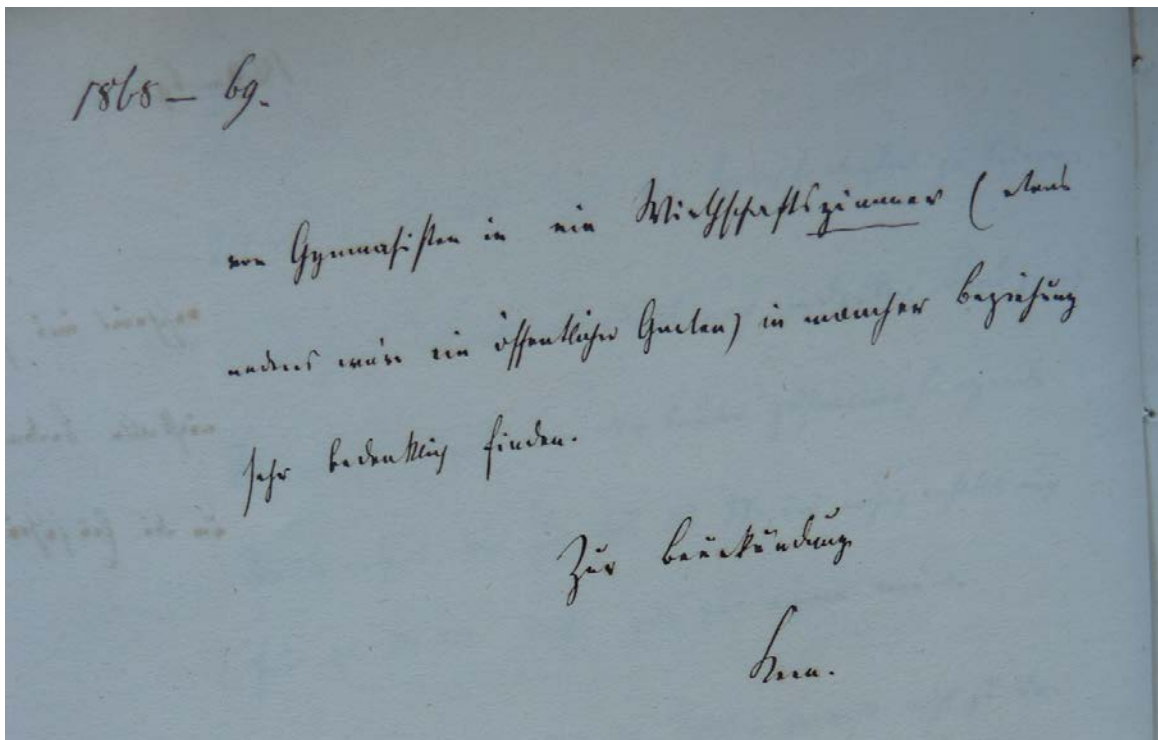 1868 – 69.
von Gymnasisten in ein Wirthschaftszimmer (etwas
anderes wäre ein öffentlicher Garten) in mancher Beziehung
sehr bedenklich finden.
Zur Beurkundung
Kern.